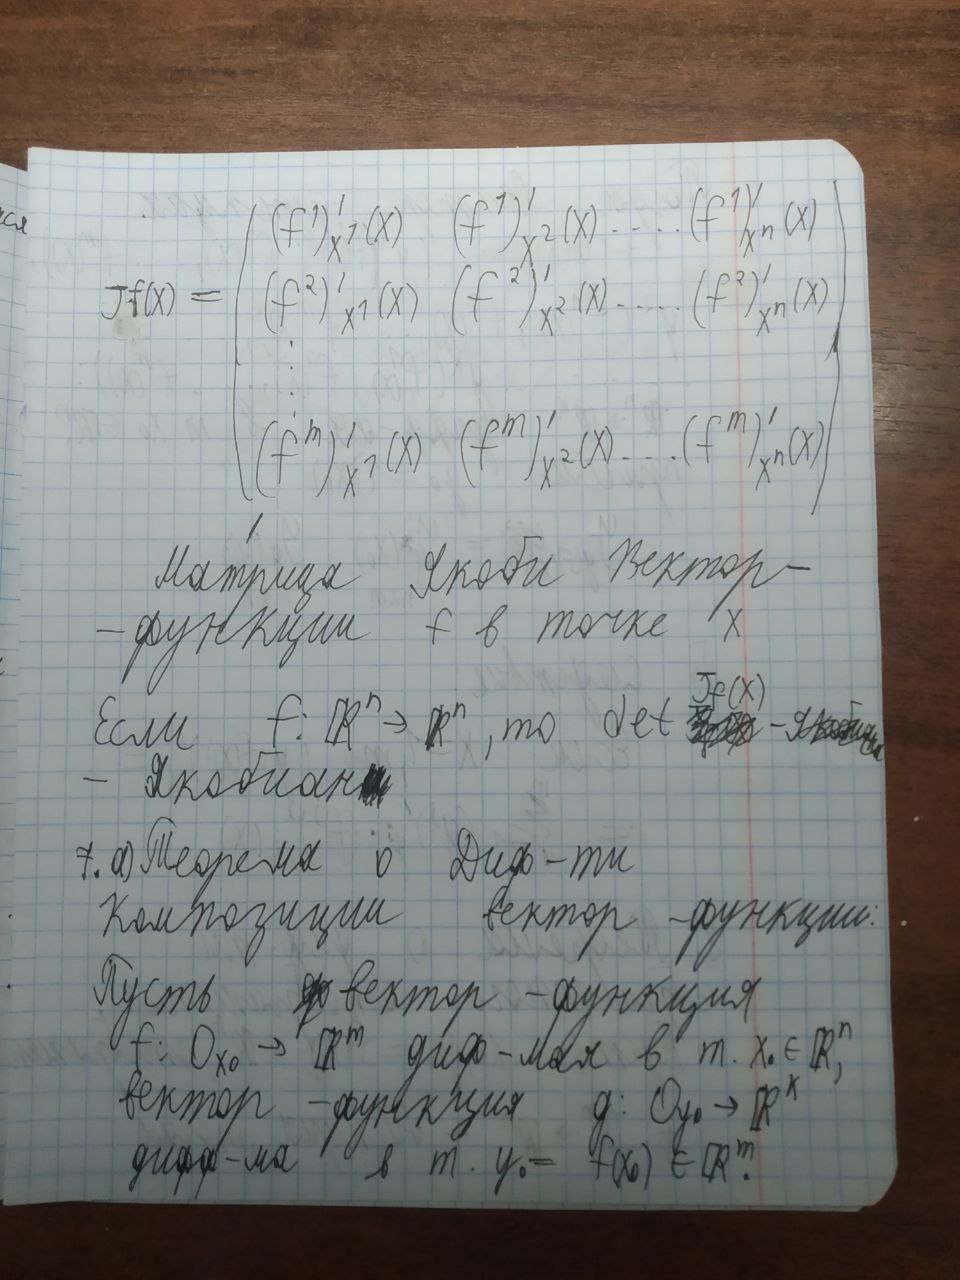 ися
(f¹)'ₓ¹(x) (f¹)'ₓ²(x) ..... (f¹)'ₓⁿ(x)
Jf(x) = (f²)'ₓ¹(x) (f²)'ₓ²(x) ..... (f²)'ₓⁿ(x)
⋮
(fᵐ)'ₓ¹(x) (fᵐ)'ₓ²(x) ... (fᵐ)'ₓⁿ(x)
Матрица Якоби Вектор-
-функции f в точке x
Jf(x)
Если f: ℝⁿ → ℝⁿ, то det
- Якобиан
7. а) Теорема о Диф-ти
Композиции вектор-функции:
Пусть вектор-функция
f: Oₓ₀ → ℝᵐ диф-мая в т. x₀ ∈ ℝⁿ,
вектор-функция g: Oy₀ → ℝᵏ
дифф-ма в т. y₀ = f(x₀) ∈ ℝᵐ.